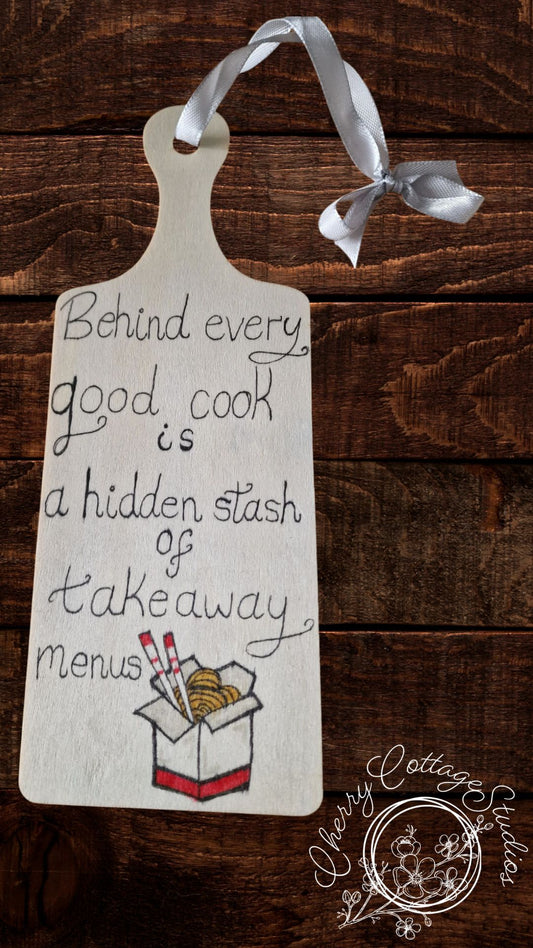 Behind every
good cook
is
a hidden stash
of
takeaway
menus
Cherry Cottage Studios